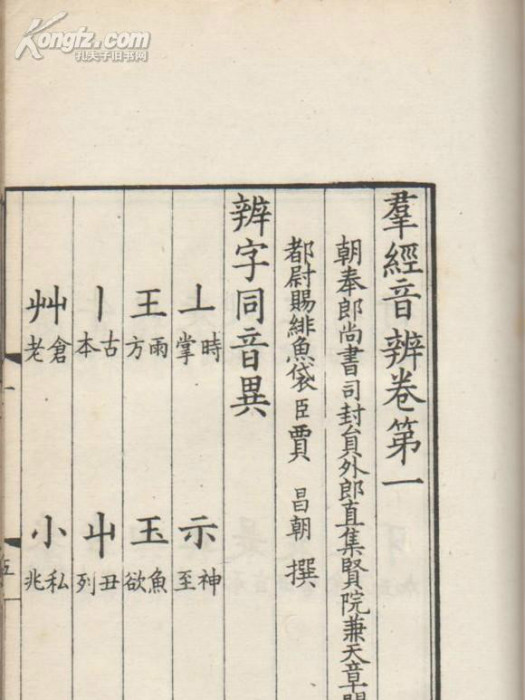 Kongfz.com
孔夫子旧书网
羣經音辨卷第一
朝奉郎尚書司封員外郎直集賢院兼天章閣
都尉賜緋魚袋臣賈昌朝撰
辨字同音異
丄時掌 示神至
王雨方 玉魚欲
丨古本 屮丑列
艸倉老 小私兆
一
五